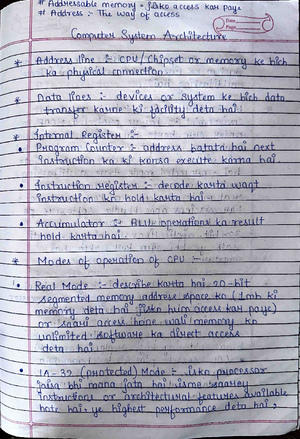 # Addressable memory - jisko access kar paye
# Address :- The way of access
Date
Page
Computer System Architecture
* Address line :- CPU / Chipset or memory ke bich
ka physical connection
* Data lines :- devices or system ke bich data
transfer karne ki facility deta hai
* Internal Register :-
• Program Counter :- address batata hai next
instruction ka ki konsa execute karna hai
• Instruction register :- decode karta waqt
instruction ko hold karta hai
• Accumulator :- ALU operations ka result
hold karta hai
* Modes of operation of CPU :-
• Real Mode :- describe karta hai 20-bit
segmented memory address space ka (1mb ki
memory deta hai jisko hum access kar paye)
or saari access hone wali memory ko
unlimited software ka direct access
deta hai
• IA-32 (protected) Mode :- jisko processor
jaisa bhi mana jata hai isme saarey
instructions or architectural features available
hote hai, ye highest performance deta hai,